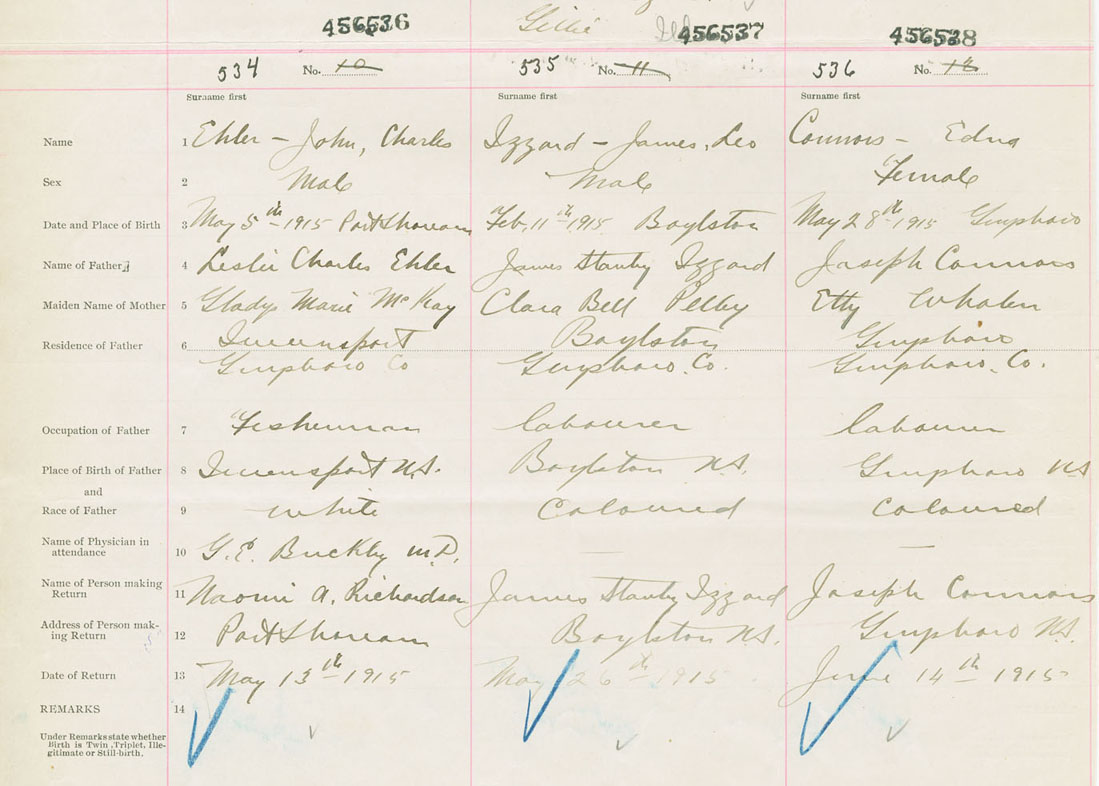 Gillie
456536 456537 456538
534 No. 10 535 No. 11 536 No. 12
Surname first Surname first Surname first
Name 1 Ehler – John, Charles Izzard – James, Leo Connors – Edna
Sex 2 Male Male Female
Date and Place of Birth 3 May 5th 1915 Port Shoream Feb, 11th 1915, Boylston May 28th 1915 Guysboro
Name of Father 4 Leslie Charles Ehler James Stanley Izzard Joseph Connors
Maiden Name of Mother 5 Gladys Marie McKay Clara Bell Pelley Etty Whalen
Residence of Father 6 Queensport Boylston Guysboro
Guysboro Co Guysboro. Co. Guysboro. Co.
Occupation of Father 7 Fisherman labourer labourer
Place of Birth of Father 8 Queensport N.S. Boylston N.S. Guysboro N.S
and
Race of Father 9 White Coloured Coloured
Name of Physician in
attendance 10 G. E. Buckley M.D. — —
Name of Person making
Return 11 Naomi A. Richardson James Stanley Izzard Joseph Connors
Address of Person mak-
ing Return 12 Port Shoream Boylston N.S. Guysboro N.S.
Date of Return 13 May 13th 1915 May 26th 1915. June 14th 1915
REMARKS 14
Under Remarks state whether
Birth is Twin, Triplet, Ille-
gitimate or Still-birth.